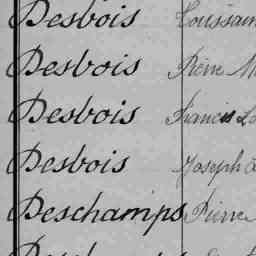 Desbois Toussain
Desbois Pierre M
Desbois Francis Lo
Desbois Joseph
Deschamps Pierre